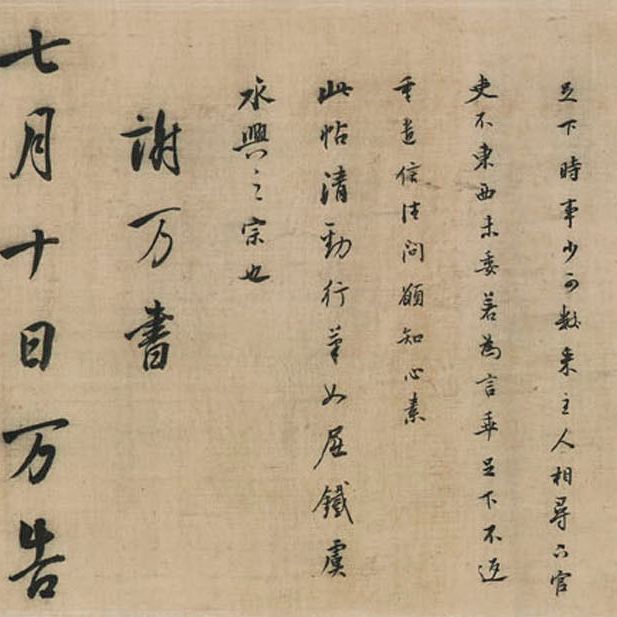 足下時事少可數來主人相尋下官
吏不東西未委若為言乖足下不返
重遣信往問願知心素
此帖清勁行筆如屈鐵虞
永興之宗也
謝万書
七月十日万告